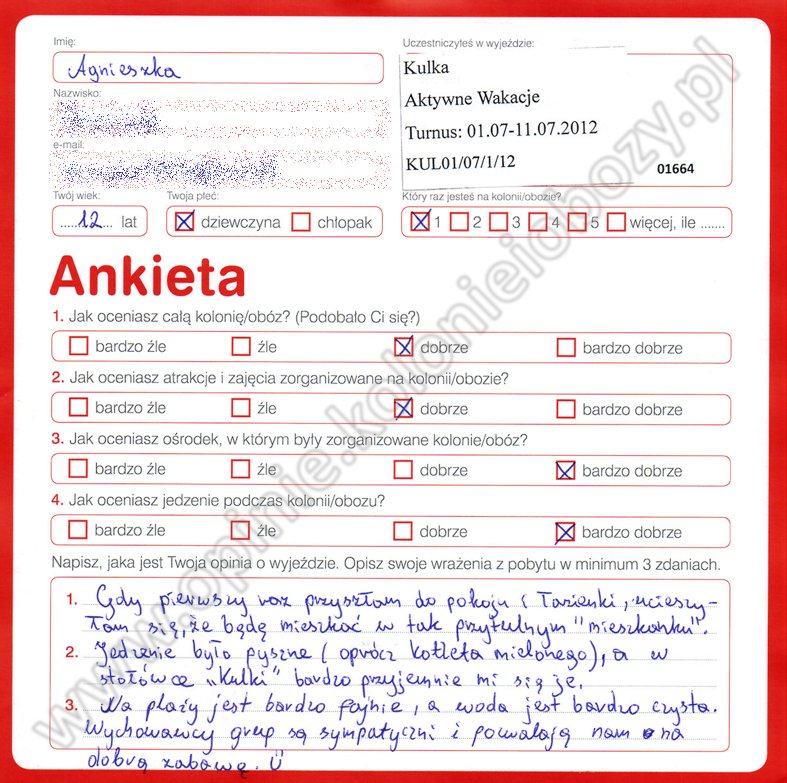 Imię:
Uczestniczyłeś w wyjeździe:
Agnieszka
Kulka
Nazwisko:
Aktywne Wakacje
Turnus: 01.07-11.07.2012
e-mail:
KUL01/07/1/12
01664
Twój wiek:
Twoja płeć:
Który raz jesteś na kolonii/obozie?
.....12... lat
dziewczyna
chłopak
1 2 3 4 5 więcej, ile .......
Ankieta
1. Jak oceniasz całą kolonię/obóz? (Podobało Ci się?)
bardzo źle źle dobrze bardzo dobrze
2. Jak oceniasz atrakcje i zajęcia zorganizowane na kolonii/obozie?
bardzo źle źle dobrze bardzo dobrze
3. Jak oceniasz ośrodek, w którym były zorganizowane kolonie/obóz?
bardzo źle źle dobrze bardzo dobrze
4. Jak oceniasz jedzenie podczas kolonii/obozu?
bardzo źle źle dobrze bardzo dobrze
Napisz, jaka jest Twoja opinia o wyjeździe. Opisz swoje wrażenia z pobytu w minimum 3 zdaniach.
1. Gdy pierwszy raz przyszłam do pokoju i łazienki, ucieszy-
łam się, że będę mieszkać w tak przytulnym "mieszkanku".
2. Jedzenie było pyszne (oprócz kotleta mielonego), a w
stołówce „Kulki" bardzo przyjemnie mi się je.
3. Na plaży jest bardzo fajnie, a woda jest bardzo czysta.
Wychowawcy grup są sympatyczni i pozwalają nam na
dobrą zabawę. Ü
www.opinie.kolonieiobozy.pl